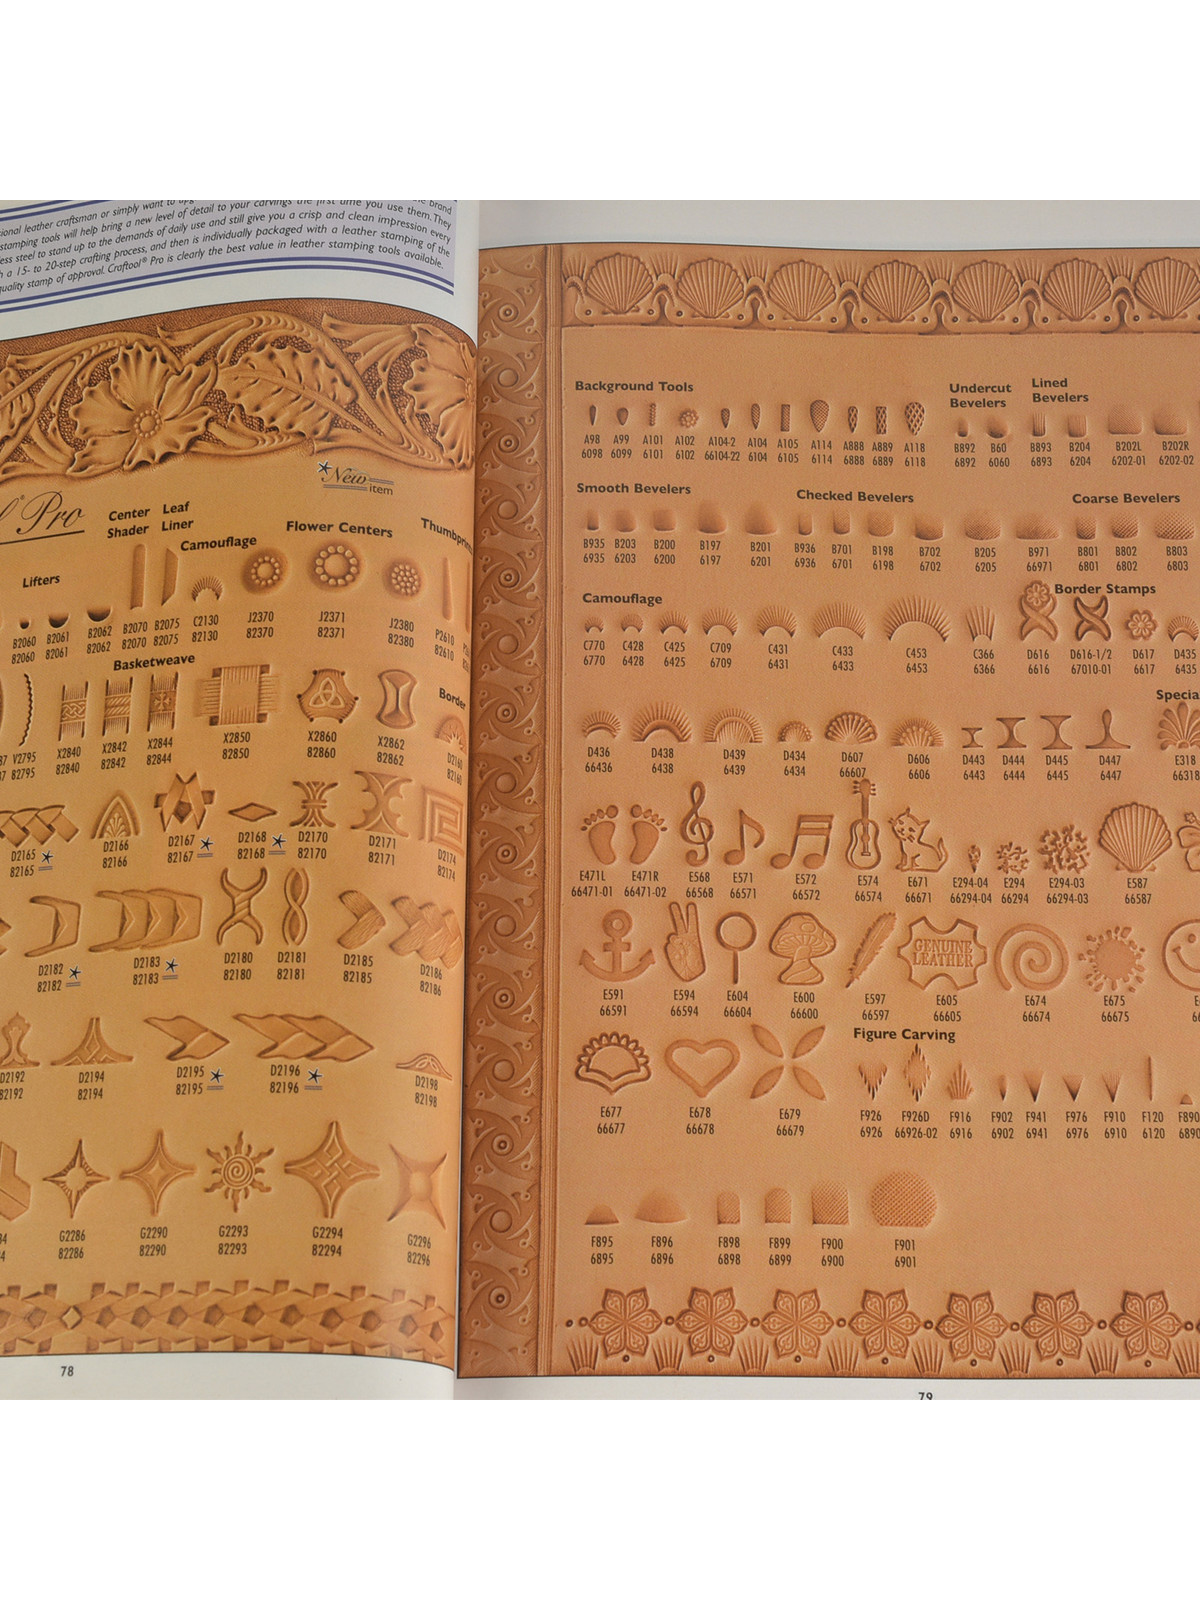 brand
sional leather craftsman or simply want to
level of detail to your carvings the first time you use them. They
stamping tools will help bring a new
less steel to stand up to the demands of daily use and still give you a crisp and clean impression every
h a 15- to 20-step crafting process, and then is individually packaged with a leather stamping of the
quality stamp of approval. Craftool® Pro is clearly the best value in leather stamping tools available.
New
item
Pro
Center Leaf
Shader Liner
Camouflage
Flower Centers
Lifters
B2060 B2061 B2062 B2070 B2075 C2130 J2370 J2371 J2380 P2610
82060 82061 82062 82070 82075 82130 82370 82371 82380 82610
Basketweave
Border
V2795 X2840 X2842 X2844 X2850 X2860 X2862 D2160
82795 82840 82842 82844 82850 82860 82862 82160
D2165 D2166 D2167 D2168 D2170 D2171 D2174
82165 82166 82167 82168 82170 82171 82174
D2182 D2183 D2180 D2181 D2185 D2186
82182 82183 82180 82181 82185 82186
D2192 D2194 D2195 D2196 D2198
82192 82194 82195 82196 82198
G2286 G2290 G2293 G2294 G2296
82286 82290 82293 82294 82296
78
Background Tools
Undercut Bevelers
Lined Bevelers
A98 A99 A101 A102 A104-2 A104 A105 A114 A888 A889 A118 B892 B60 B893 B204 B202L B202R
6098 6099 6101 6102 66104-22 6104 6105 6114 6888 6889 6118 6892 6060 6893 6204 6202-01 6202-02
Smooth Bevelers
Checked Bevelers
Coarse Bevelers
B935 B203 B200 B197 B201 B936 B701 B198 B702 B205 B971 B801 B802 B803
6935 6203 6200 6197 6201 6936 6701 6198 6702 6205 66971 6801 6802 6803
Camouflage
Border Stamps
C770 C428 C425 C709 C431 C433 C453 C366 D616 D616-1/2 D617 D435
6770 6428 6425 6709 6431 6433 6453 6366 6616 67010-01 6617 6435
D436 D438 D439 D434 D607 D606 D443 D444 D445 D447 E318
66436 6438 6439 6434 66607 6606 6443 6444 6445 6447 66318
E471L E471R E568 E571 E572 E574 E671 E294-04 E294 E294-03 E587
66471-01 66471-02 66568 66571 66572 66574 66671 66294-04 66294 66294-03 66587
GENUINE
LEATHER
E591 E594 E604 E600 E597 E605 E674 E675
66591 66594 66604 66600 66597 66605 66674 66675
Figure Carving
E677 E678 E679 F926 F926D F916 F902 F941 F976 F910 F120 F890
66677 66678 66679 6926 66926-02 6916 6902 6941 6976 6910 6120 6890
F895 F896 F898 F899 F900 F901
6895 6896 6898 6899 6900 6901
79